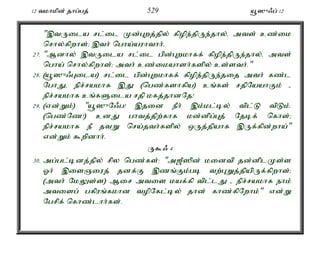 12 வமாமின் தாப்பத் 529 யூஸுஃப் 12
"இவருடைய சட்டை முன்புறத்தில் கிழிந்திருந்தால், அவள் உண்மை
சொல்கிறாள்; இவர் பொய்யராவார்.
27. "ஆனால் இவருடைய சட்டை பின்புறமாகக் கிழிந்திருந்தால், அவள்
பொய் சொல்கிறாள்; அவர் உண்மையாளர்களில் உள்ளவர்."
28. (யூஸுஃபுடைய) சட்டை பின்புறமாகக் கிழிந்திருந்ததை அவர் கண்ட
போது, நிச்சயமாக இது (பெண்களாகிய) உங்கள் சதியேயாகும் -
நிச்சயமாக உங்களுடைய சதி மகத்தானதே!
29. (என்றும்) "யூஸுஃபே! இதனை நீர் இம்மட்டில் விட்டு விடும்.
(பெண்ணே!) உனது பாவத்திற்காக மன்னிப்புத் தேடிக் கொள்;
நிச்சயமாக நீ தவறு செய்தவர்களில் ஒருத்தியாக இருக்கின்றாய்"
என்றும் கூறினார்.
ருகூஃ 4
30. அப்பட்டினத்தில் சில பெண்கள்; "அஜீஸின் மனைவி தன்னிடமுள்ள
ஓர் இளைஞரைத் தனக்கு இணங்கும்படி வற்புறுத்தியிருக்கிறாள்;
(அவர் மேலுள்ள) ஆசை அவளை மயக்கி விட்டது - நிச்சயமாக நாம்
அவளைப் பகிரங்கமான வழிகேட்டில் தான் காண்கிறோம்" என்று
பேசிக் கொண்டார்கள்.